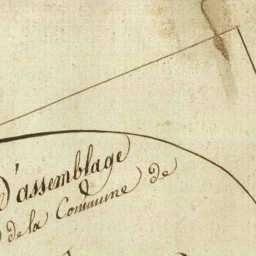 D'assemblage
de la Commune de